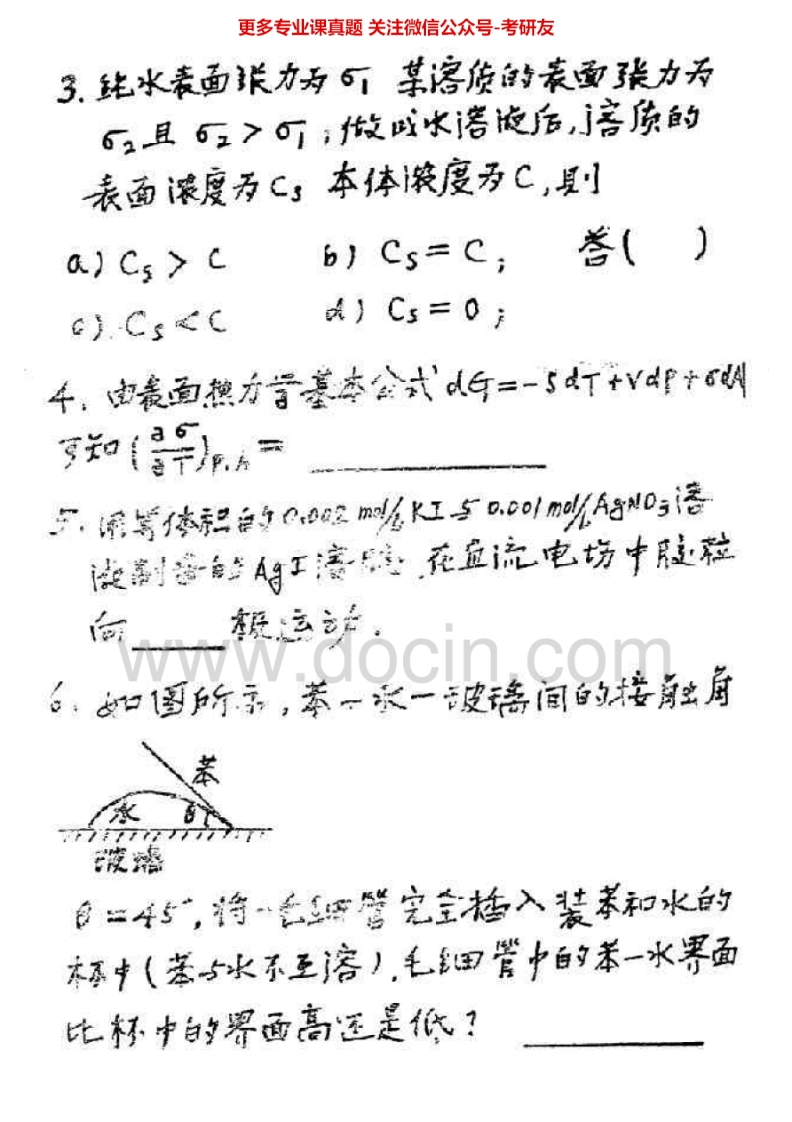 更多专业课真题 关注微信公众号-考研友
3. 纯水表面张力为 σ₁ 某溶质的表面张力为
σ₂ 且 σ₂ > σ₁, 做成水溶液后,溶质的
表面浓度为 Cₛ 本体浓度为 C, 则
a) Cₛ > C b) Cₛ = C; 答( )
c). Cₛ < C d) Cₛ = 0;
4. 由表面热力学基本公式 dG = -SdT + Vdp + σdA
可知 (∂σ/∂T)P,A = ________
5. 用等体积的 0.002 mol/L KI 与 0.001 mol/L AgNO₃ 溶
液制备的 AgI 溶胶, 在直流电场中胶粒
向 ______ 极运动.
www.docin.com
6. 如图所示, 苯-水-玻璃间的接触角
苯
水 θ
玻璃
θ = 45°, 将一毛细管完全插入装苯和水的
杯中(苯与水不互溶), 毛细管中的苯-水界面
比杯中的界面高还是低? ________